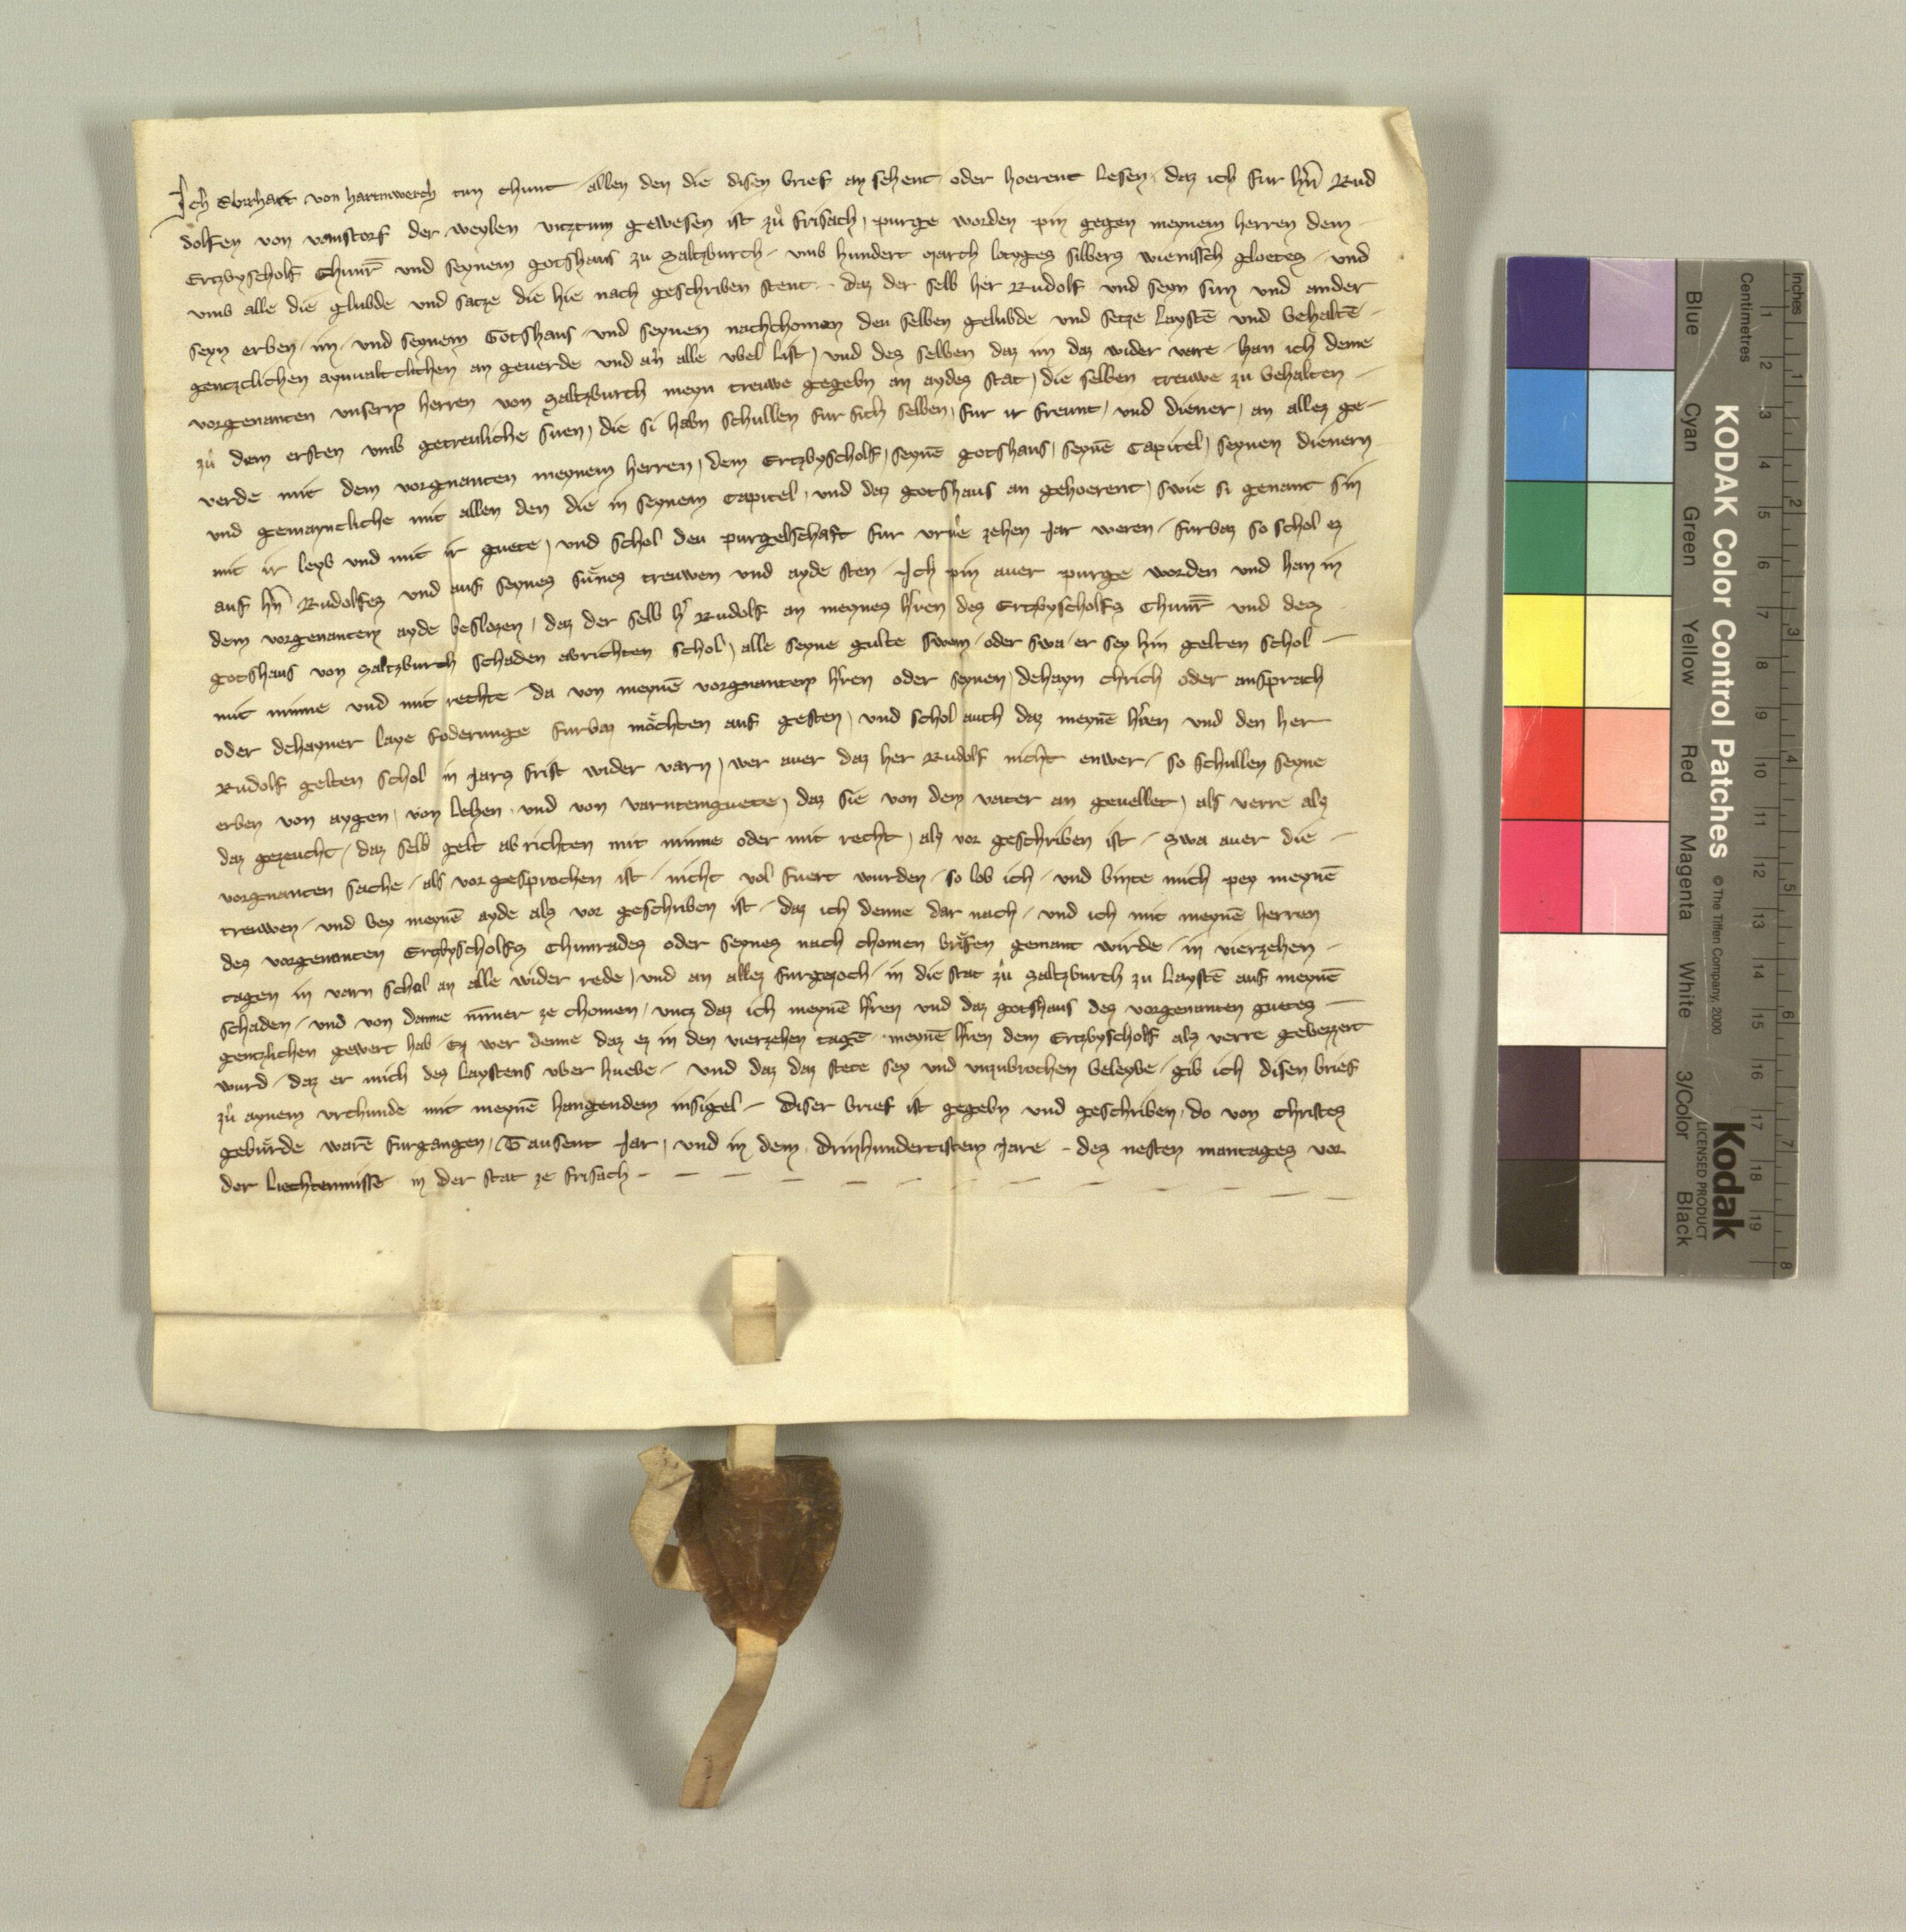 Ich Eberhart von hartnwerch tun chunt allen den die disen brief an sehent oder hoerent lesen, daz ich fur hñ Rud
dolfen von vanstorf der weylen vitztum gewesen ist zů frisach, purge worden pin gegen meynem herren dem
Ertzbyscholf Chunr̄ und seynem gotshaus zu Saltzburch, umb hundert march lotyges silbers wienissch gloetes, und
umb alle die glubde und satze die hie nach geschriben stent, daz der selb her Rudolf und seyn sun und ander
seyn erben im und seynem Gotshaus und seynen nachchomen den selben gelubde und setze laystē und behaltē
gentzclichen aynvaltclichen an geuerde und an alle ubel list, und des selben daz im daz wider vare, han ich deme
vorgenanten unserm herren von Saltzburch meyn treuwe gegebn an aydes stat, die selben treuwe zu behalten
zů dem ersten umb getreuliche suen, die si habn schullen fur sich selben, fur ir freunt, und diener, an allez ge-
verde mit dem vorgnanten meynem herren, dem Ertzbyscholf, seynē gotshaus, seynē Capitel, seynen dienern
und gemayncliche mit allen den die in seynem Capitel, und daz gotshaus an gehoerent, swie si genant sin
mit ir leyb und mit ir guete, und schol deu purgelschaft fur zehen Jar weren, furbaz so schol ez
auf hñ Rudolfes und auf seynes sůnes treuwen und ayde sten, Ich pin auer purge worden und han in
dem vorgenantem ayde beslozen, daz der selb h' Rudolf an meynes h'ren des Ertzbyscholfs Chunr̄ und dez
gotshaus von Saltzburch schaden abrichten schol, alle seyne gulte swem oder swa er sey hin gelten schol
mit minne und mit rechte da von meynē vorgnantem h'ren oder seynen, dehayn chrich oder ansprach
oder dehayner laye foderunge furbaz möchten auf gesten, und schol auch daz meynē h'ren und den her
Rudolf gelten schol in Jars frist wider varn, wer auer daz her Rudolf nicht enwer, so schullen seyne
erben von aygen, von lehen, und von varntemguete, daz sie von dem vater an geuellet, als verre als
daz gezeucht, daz selb gelt ab richten mit minne oder mit recht, als vor geschriben ist, Swa auer die
vorgnanten sache, als vor gesprochen ist, nicht vol fuert wurden, so lob ich, und binte mich pey meynē
treuwen, und bey meynē ayde als vor geschriben ist, daz ich denne dar nach, und ich mit meynē herren
des vorgenanten Ertzbyscholfs Chunrades oder seynes nach chomen briefen gemant wirde, in vierzehen
tagen in varn schol an alle wider rede, und an allez furgezoch, in die stat zů Saltzburch zu laystē auf meynē
schaden, und von danne nimmer ze chomen, untz daz ich meynē h'ren und daz gotshaus des vorgenanten gutes
gentzlichen gewert hab, Ez wer denne daz ez in den vierzehen tagē meynē h'ren dem Ertzbyscholf als verre gebezzert
wurd, daz er mich des laystens uber huebe, Und daz daz stete sey und unzubrochen beleybe, gib ich disen brief
zů aynem urchunde mit meynē hangendem insigel, Diser brief ist gegebn und geschriben, do von Christes
gebůrde warē furgangen, Tausent Jar, und in dem drinhundertistem Jare, des nesten mantages vor
der Liechtenmisse in der stat ze frisach
Inches
Centimetres
KODAK Color Control Patches
© The Tiffen Company, 2000
Kodak
LICENSED PRODUCT
Blue
Cyan
Green
Yellow
Red
Magenta
White
3/Color
Black
1 2 3 4 5 6 7 8
1 2 3 4 5 6 7 8 9 10 11 12 13 14 15 16 17 18 19